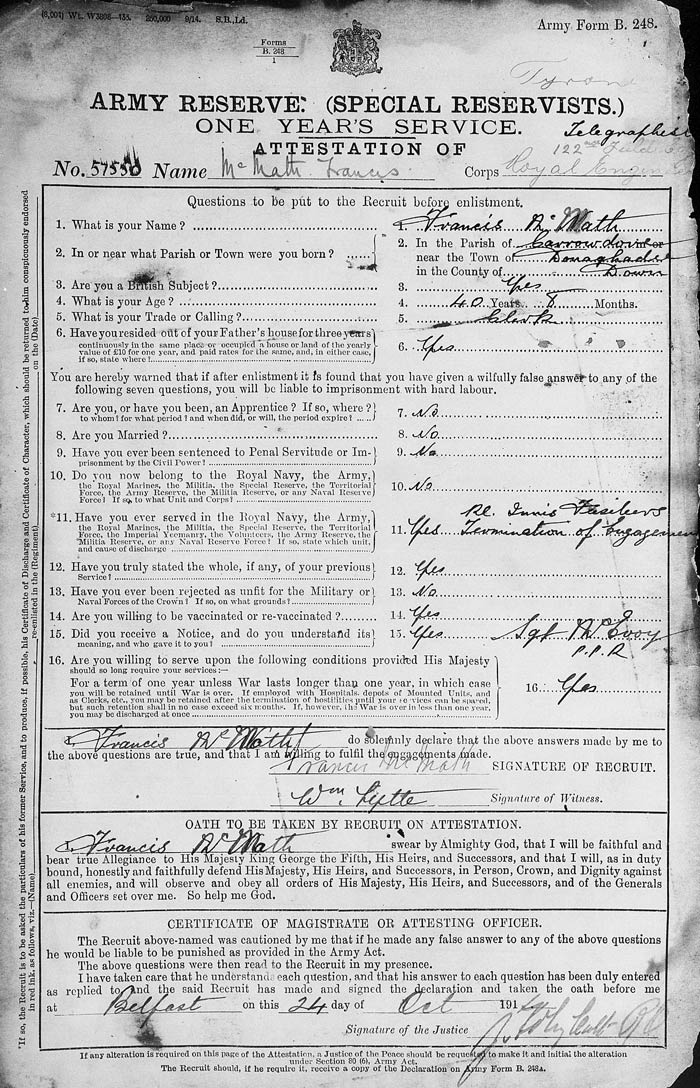 (8,001) Wt. W3808—133. 250,000 9/14. S.B.,Ld.
Army Form B. 248.
Forms
B. 248
1
Tyrone
ARMY RESERVE. (SPECIAL RESERVISTS.)
ONE YEAR'S SERVICE.
Telegraphist
ATTESTATION OF
122nd Field
No. 57550 Name McMath Francis Corps Royal Engin
Questions to be put to the Recruit before enlistment.
1. What is your Name? 1. Francis McMath
2. In or near what Parish or Town were you born? 2. In the Parish of Carrowdore or
near the Town of Donaghadee
in the County of Down
3. Are you a British Subject? 3. Yes
4. What is your Age? 4. 40 Years 8 Months.
5. What is your Trade or Calling? 5. Clerk
6. Have you resided out of your Father's house for three years
continuously in the same place or occupied a house or land of the yearly
value of £10 for one year, and paid rates for the same, and, in either case,
if so, state where? 6. Yes
You are hereby warned that if after enlistment it is found that you have given a wilfully false answer to any of the
following seven questions, you will be liable to imprisonment with hard labour.
7. Are you, or have you been, an Apprentice? If so, where?
to whom? for what period? and when did, or will, the period expire? 7. No
8. Are you Married? 8. No
9. Have you ever been sentenced to Penal Servitude or Im-
prisonment by the Civil Power? 9. No
10. Do you now belong to the Royal Navy, the Army,
the Royal Marines, the Militia, the Special Reserve, the Territorial
Force, the Army Reserve, the Militia Reserve, or any Naval Reserve
Force? If so, to what Unit and Corps? 10. No
*11. Have you ever served in the Royal Navy, the Army,
the Royal Marines, the Militia, the Special Reserve, the Territorial
Force, the Imperial Yeomanry, the Volunteers, the Army Reserve, the
Militia Reserve, or any Naval Reserve Force? If so, state which unit,
and cause of discharge 11. Yes Rl. Innis Fusiliers
Termination of Engagement
12. Have you truly stated the whole, if any, of your previous
Service? 12. Yes
13. Have you ever been rejected as unfit for the Military or
Naval Forces of the Crown? If so, on what grounds? 13. No
14. Are you willing to be vaccinated or re-vaccinated? 14. Yes
15. Did you receive a Notice, and do you understand its
meaning, and who gave it to you? 15. Yes Sgt McEvoy
16. Are you willing to serve upon the following conditions provided His Majesty
should so long require your services:—
For a term of one year unless War lasts longer than one year, in which case
you will be retained until War is over. If employed with Hospitals, depots of Mounted Units, and
as Clerks, etc., you may be retained after the termination of hostilities until your services can be spared,
but such retention shall in no case exceed six months. If, however, the War is over in less than one year,
you may be discharged at once 16. Yes
I, Francis McMath do solemnly declare that the above answers made by me to
the above questions are true, and that I am willing to fulfil the engagements made.
Francis McMath SIGNATURE OF RECRUIT.
Wm. Lytte Signature of Witness.
OATH TO BE TAKEN BY RECRUIT ON ATTESTATION.
I, Francis McMath swear by Almighty God, that I will be faithful and
bear true Allegiance to His Majesty King George the Fifth, His Heirs, and Successors, and that I will, as in duty
bound, honestly and faithfully defend His Majesty, His Heirs, and Successors, in Person, Crown, and Dignity against
all enemies, and will observe and obey all orders of His Majesty, His Heirs, and Successors, and of the Generals
and Officers set over me. So help me God.
CERTIFICATE OF MAGISTRATE OR ATTESTING OFFICER.
The Recruit above-named was cautioned by me that if he made any false answer to any of the above questions
he would be liable to be punished as provided in the Army Act.
The above questions were then read to the Recruit in my presence.
I have taken care that he understands each question, and that his answer to each question has been duly entered
as replied to and the said Recruit has made and signed the declaration and taken the oath before me
at Belfast on this 24 day of Oct 191
Signature of the Justice
If any alteration is required on this page of the Attestation, a Justice of the Peace should be requested to make it and initial the alteration
under Section 80 (6), Army Act.
The Recruit should, if he require it, receive a copy of the Declaration on Army Form B. 248A.
*If so, the Recruit is to be asked the particulars of his former Service, and to produce, if possible, his Certificate of Discharge and Certificate of Character, which should be returned to him conspicuously endorsed
in red ink, as follows, viz.—(Name) re-enlisted in the (Regiment) on the (Date)